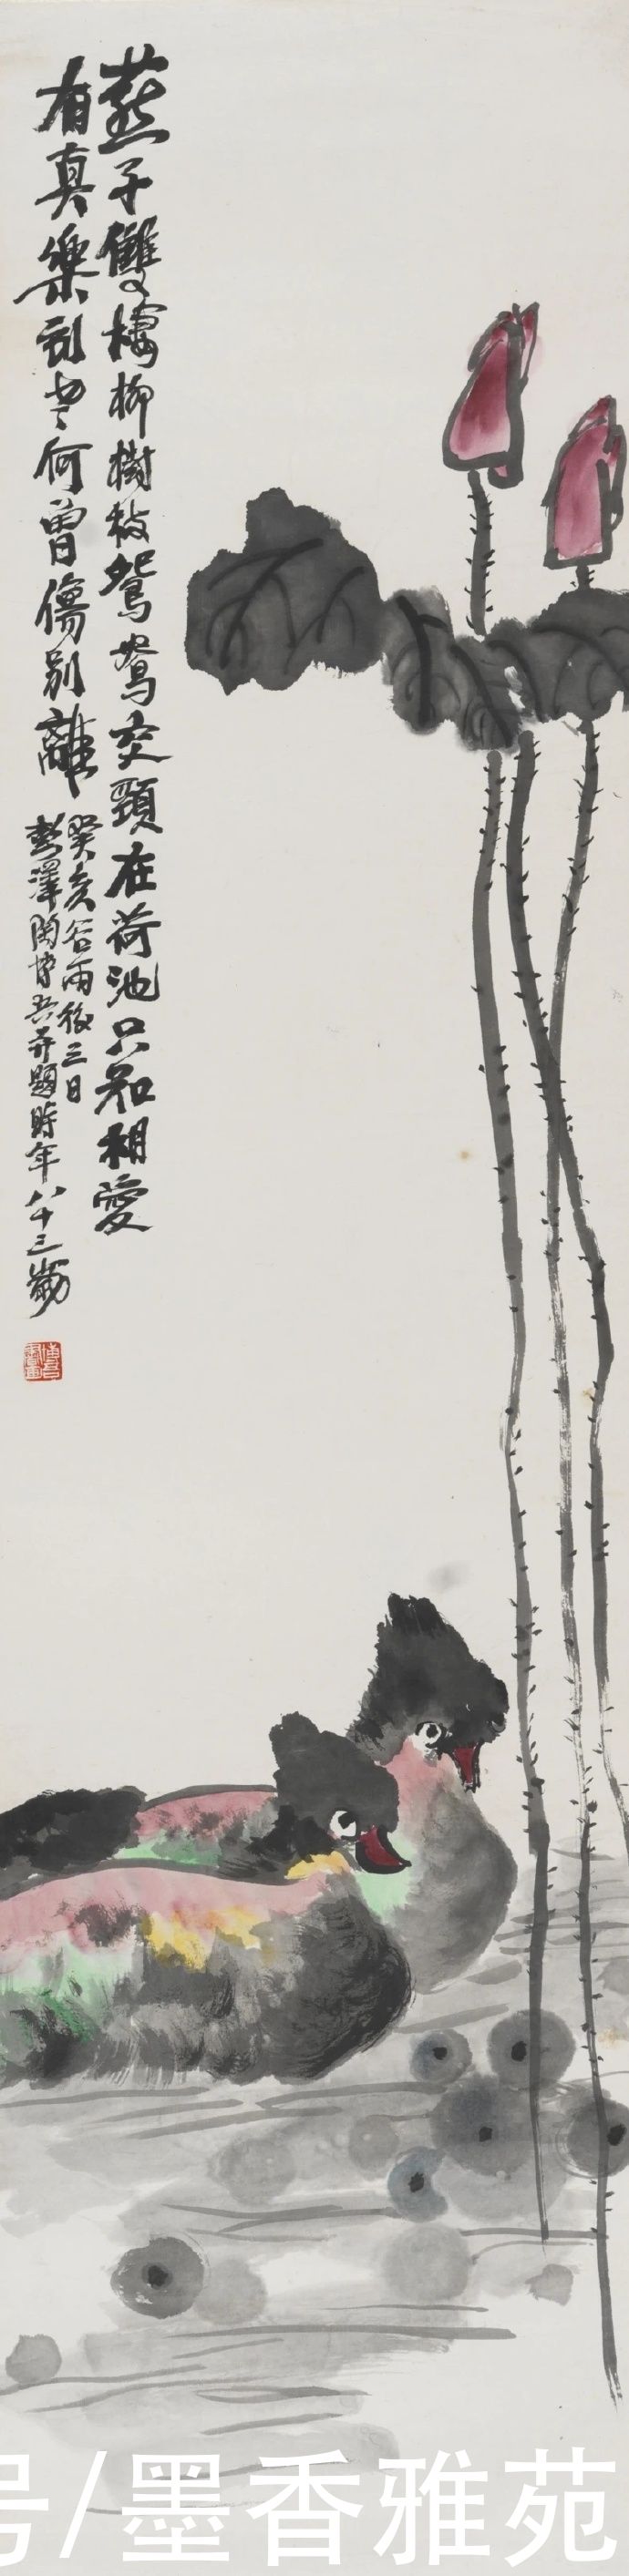 燕子雙棲柳樹枝鴛鴦交頸在荷池只知相愛
有真樂到老何曾傷別離
癸亥谷雨後三日
彭澤陶博吾并題時年八十三歲
博吾書畫
号/墨香雅苑